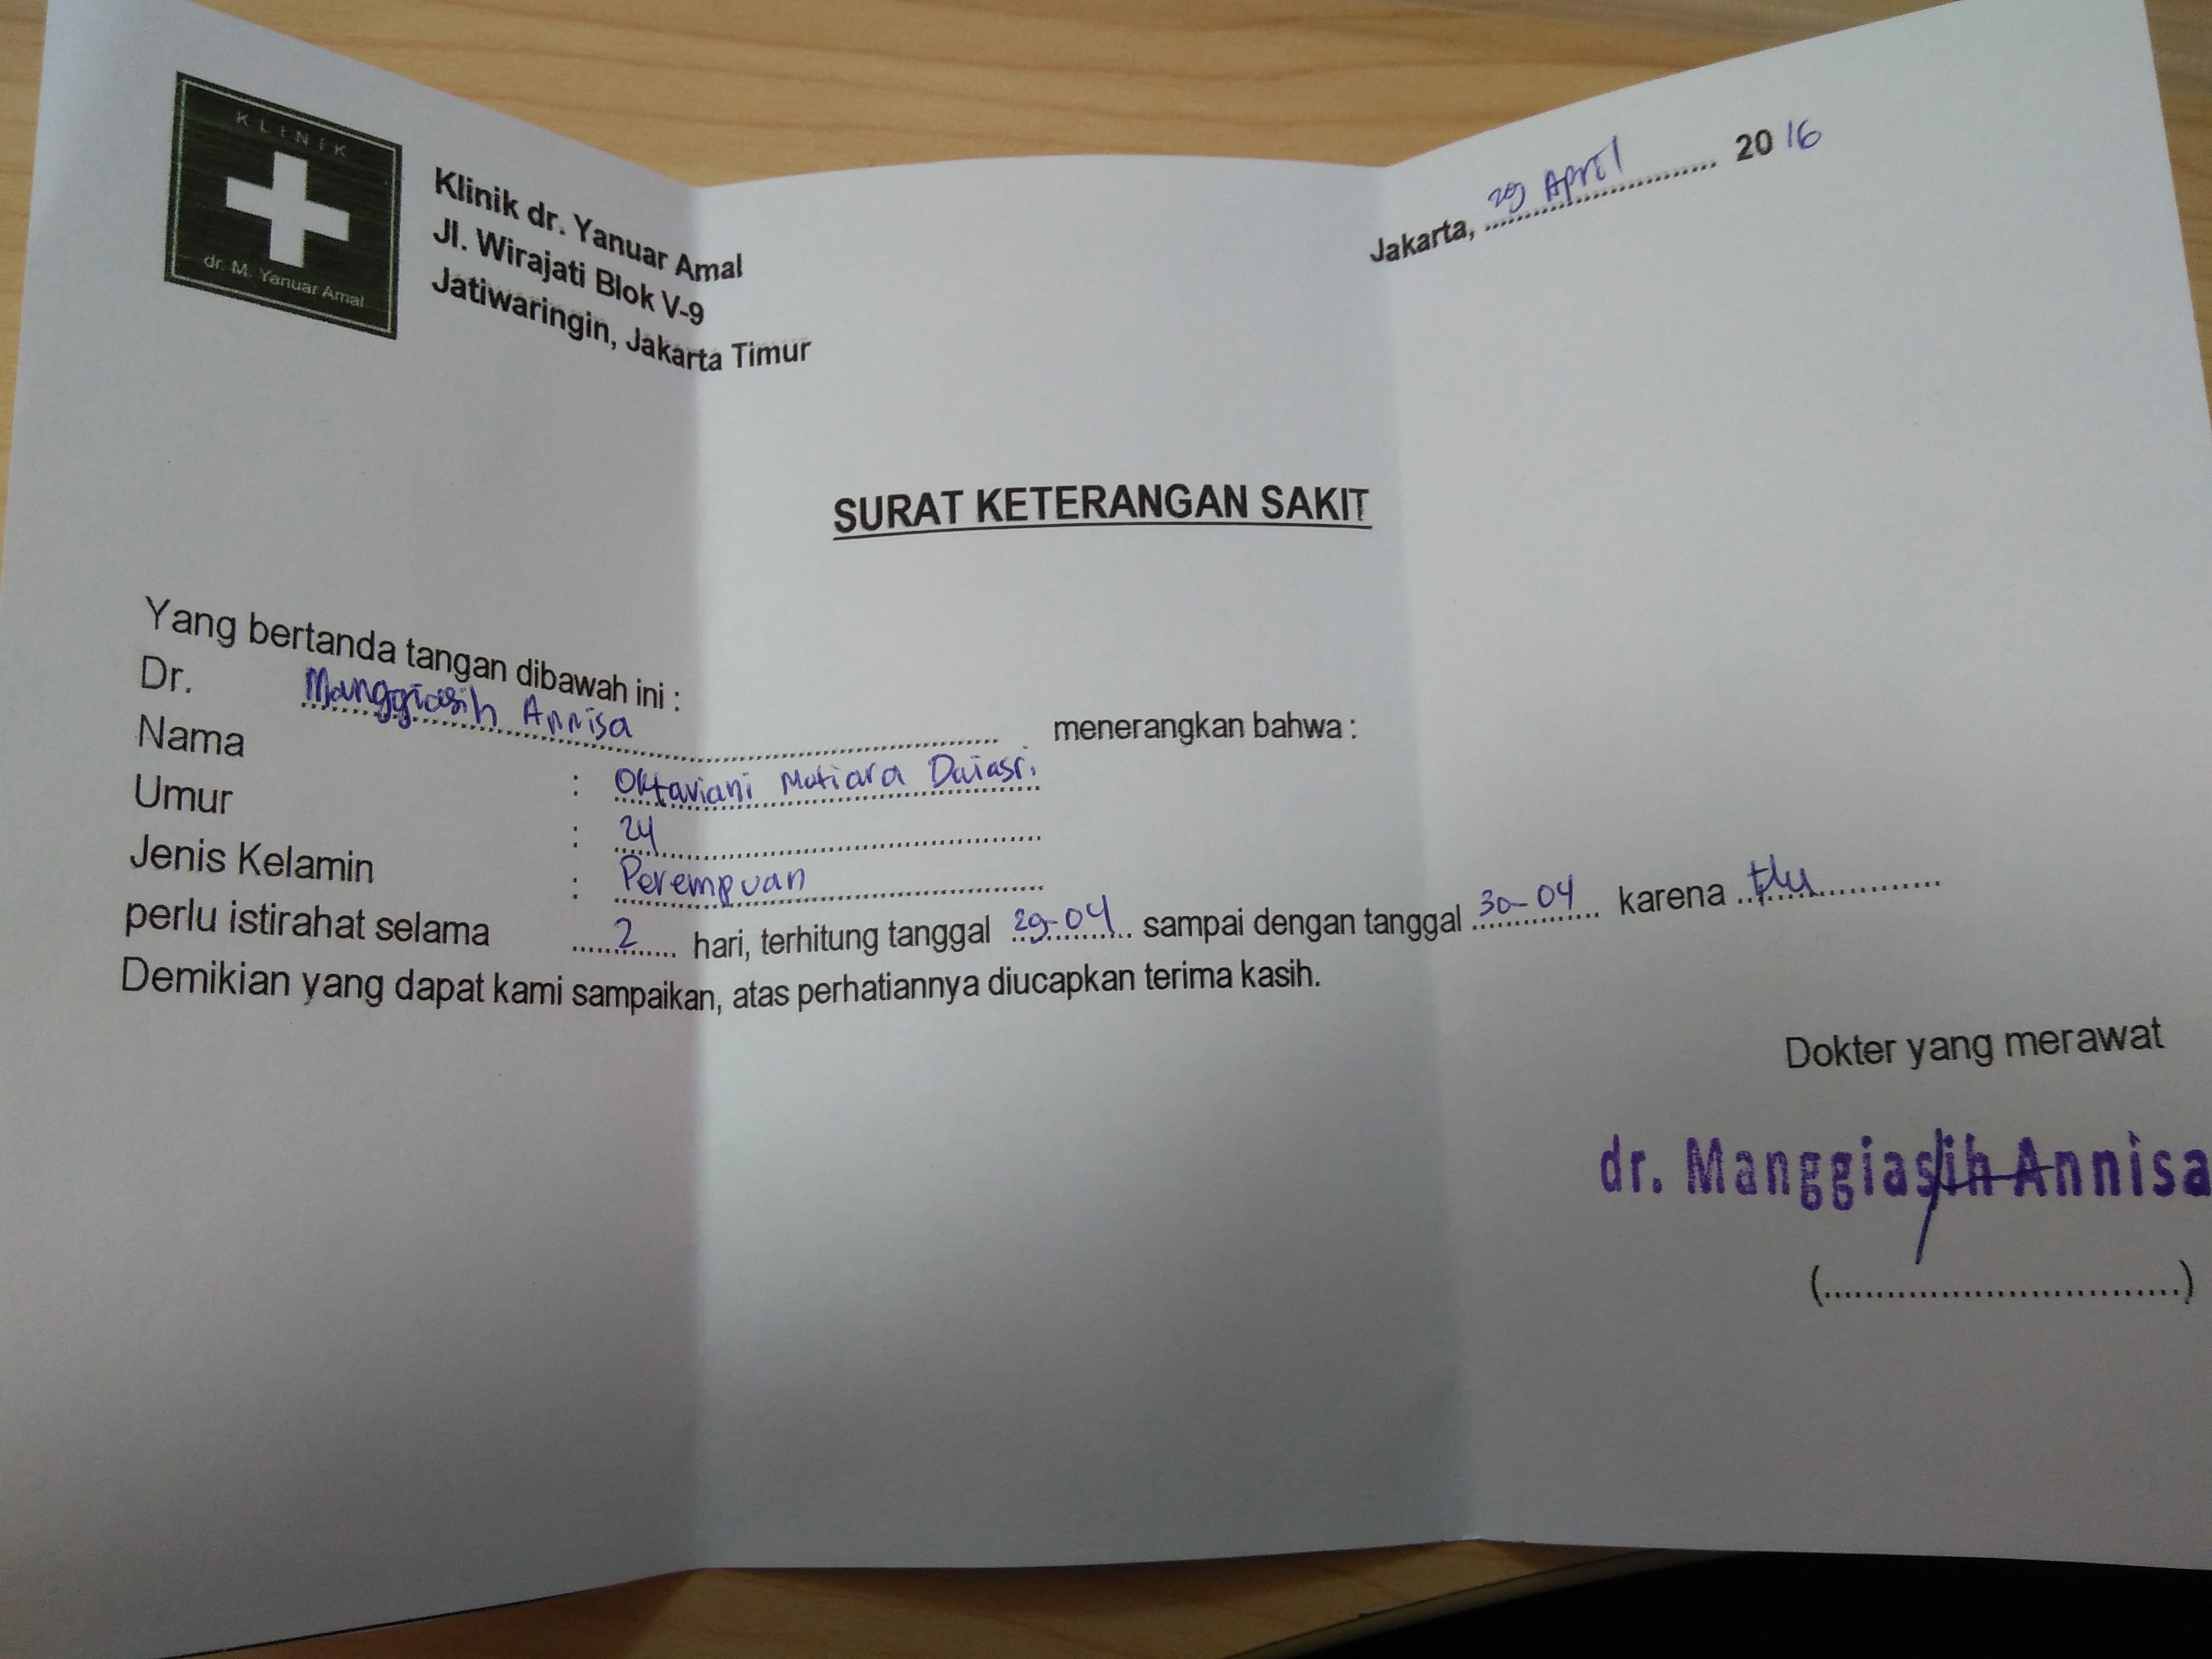 KLINIK
dr. M. Yanuar Amal
Klinik dr. Yanuar Amal
Jl. Wirajati Blok V-9
Jatiwaringin, Jakarta Timur
Jakarta, 29 April 2016
SURAT KETERANGAN SAKIT
Yang bertanda tangan dibawah ini :
Dr. Manggiasih Annisa menerangkan bahwa :
Nama : Oktaviani Mutiara Dwiasri
Umur : 24
Jenis Kelamin : Perempuan
perlu istirahat selama 2 hari, terhitung tanggal 29-04 sampai dengan tanggal 30-04 karena flu
Demikian yang dapat kami sampaikan, atas perhatiannya diucapkan terima kasih.
Dokter yang merawat
dr. Manggiasih Annisa
(................................)